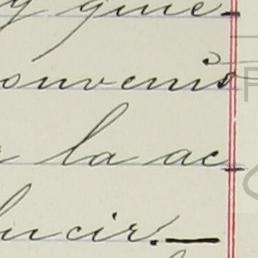 y quie-
onvenis
la ac-
lucir.—